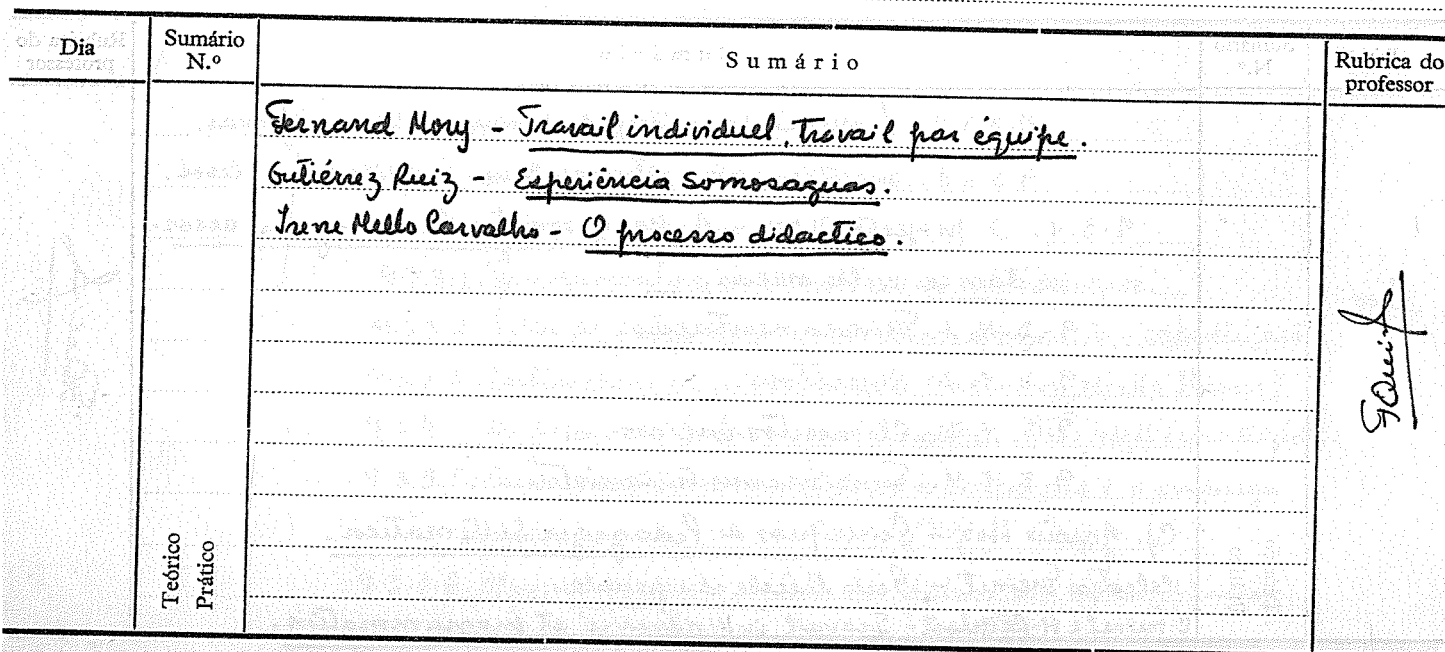 Dia
Sumário N.º
Sumário
Rubrica do professor
Fernand Mory - Travail individuel, Travail par équipe.
Gutiérrez Ruiz - Esperiência Somosaguas.
Irene Mello Carvalho - O processo didactico.
Teórico
Prático